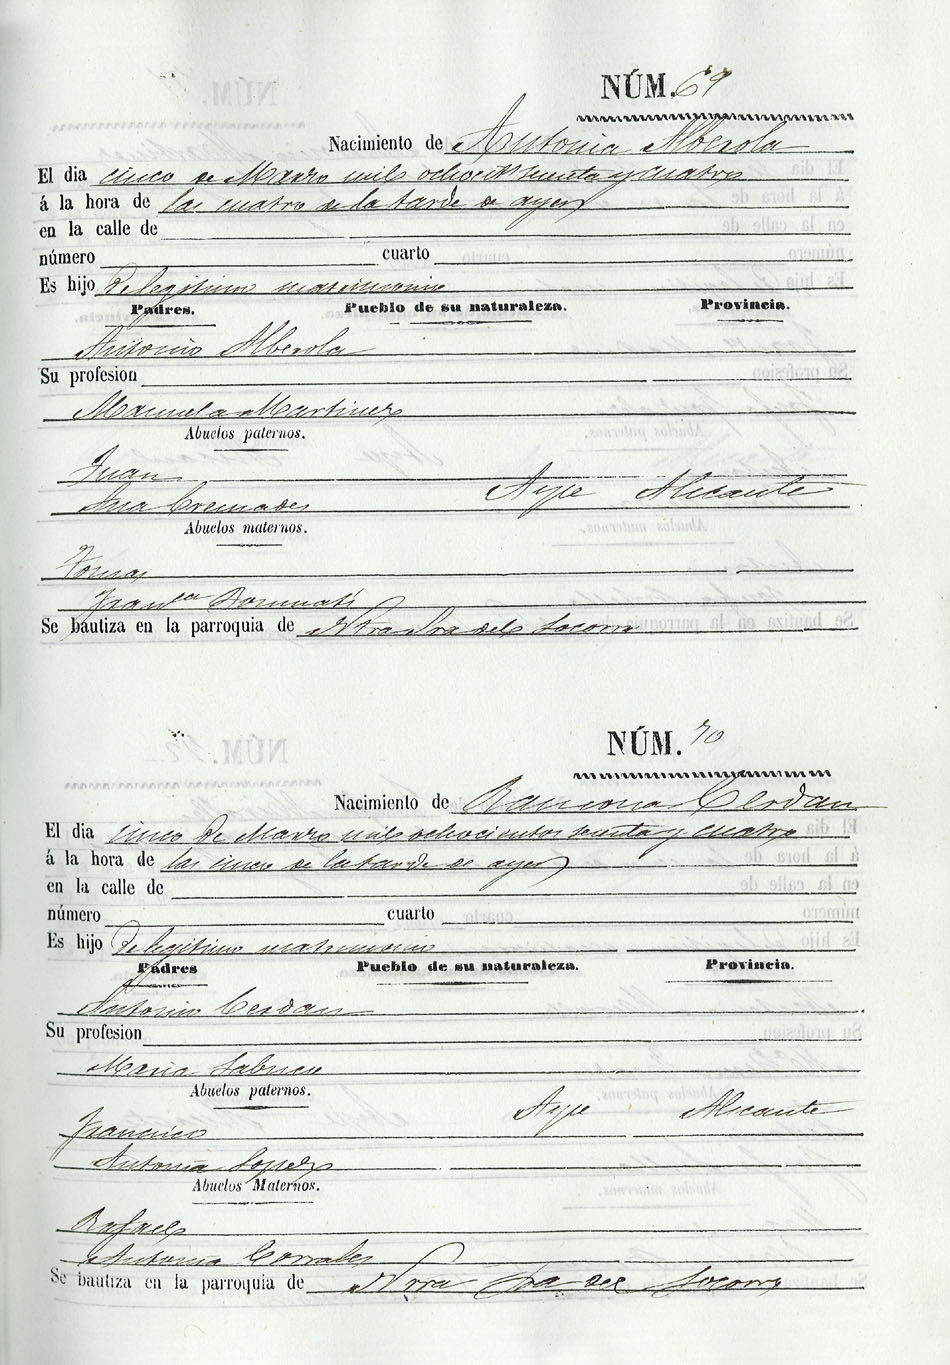 NÚM. 69
Nacimiento de Antonia Alberola
El dia cinco de Marzo mil ochocits setenta y cuatro
á la hora de las cuatro de la tarde de ayer
en la calle de
número cuarto
Es hijo de legitimo matrimonio
Padres. Pueblo de su naturaleza. Provincia.
Antonio Alberola
Su profesion
Manuela Martinez
Abuelos paternos.
Juan
Ana Cremades Aspe Alicante
Abuelos maternos.
Tomas
Franca
Se bautiza en la parroquia de Ntra Sra del Socorro
NÚM. 70
Nacimiento de Ramona Cerdan
El dia cinco de Marzo mil ochocientos setenta y cuatro
á la hora de las cinco de la tarde de ayer
en la calle de
número cuarto
Es hijo de legitimo matrimonio
Padres Pueblo de su naturaleza. Provincia.
Antonio Cerdan
Su profesion
Maria
Abuelos paternos.
Francisco Aspe Alicante
Antonia Lopez
Abuelos Maternos.
Rafael
Antonia Corrales
Se bautiza en la parroquia de Ntra Sra del Socorro